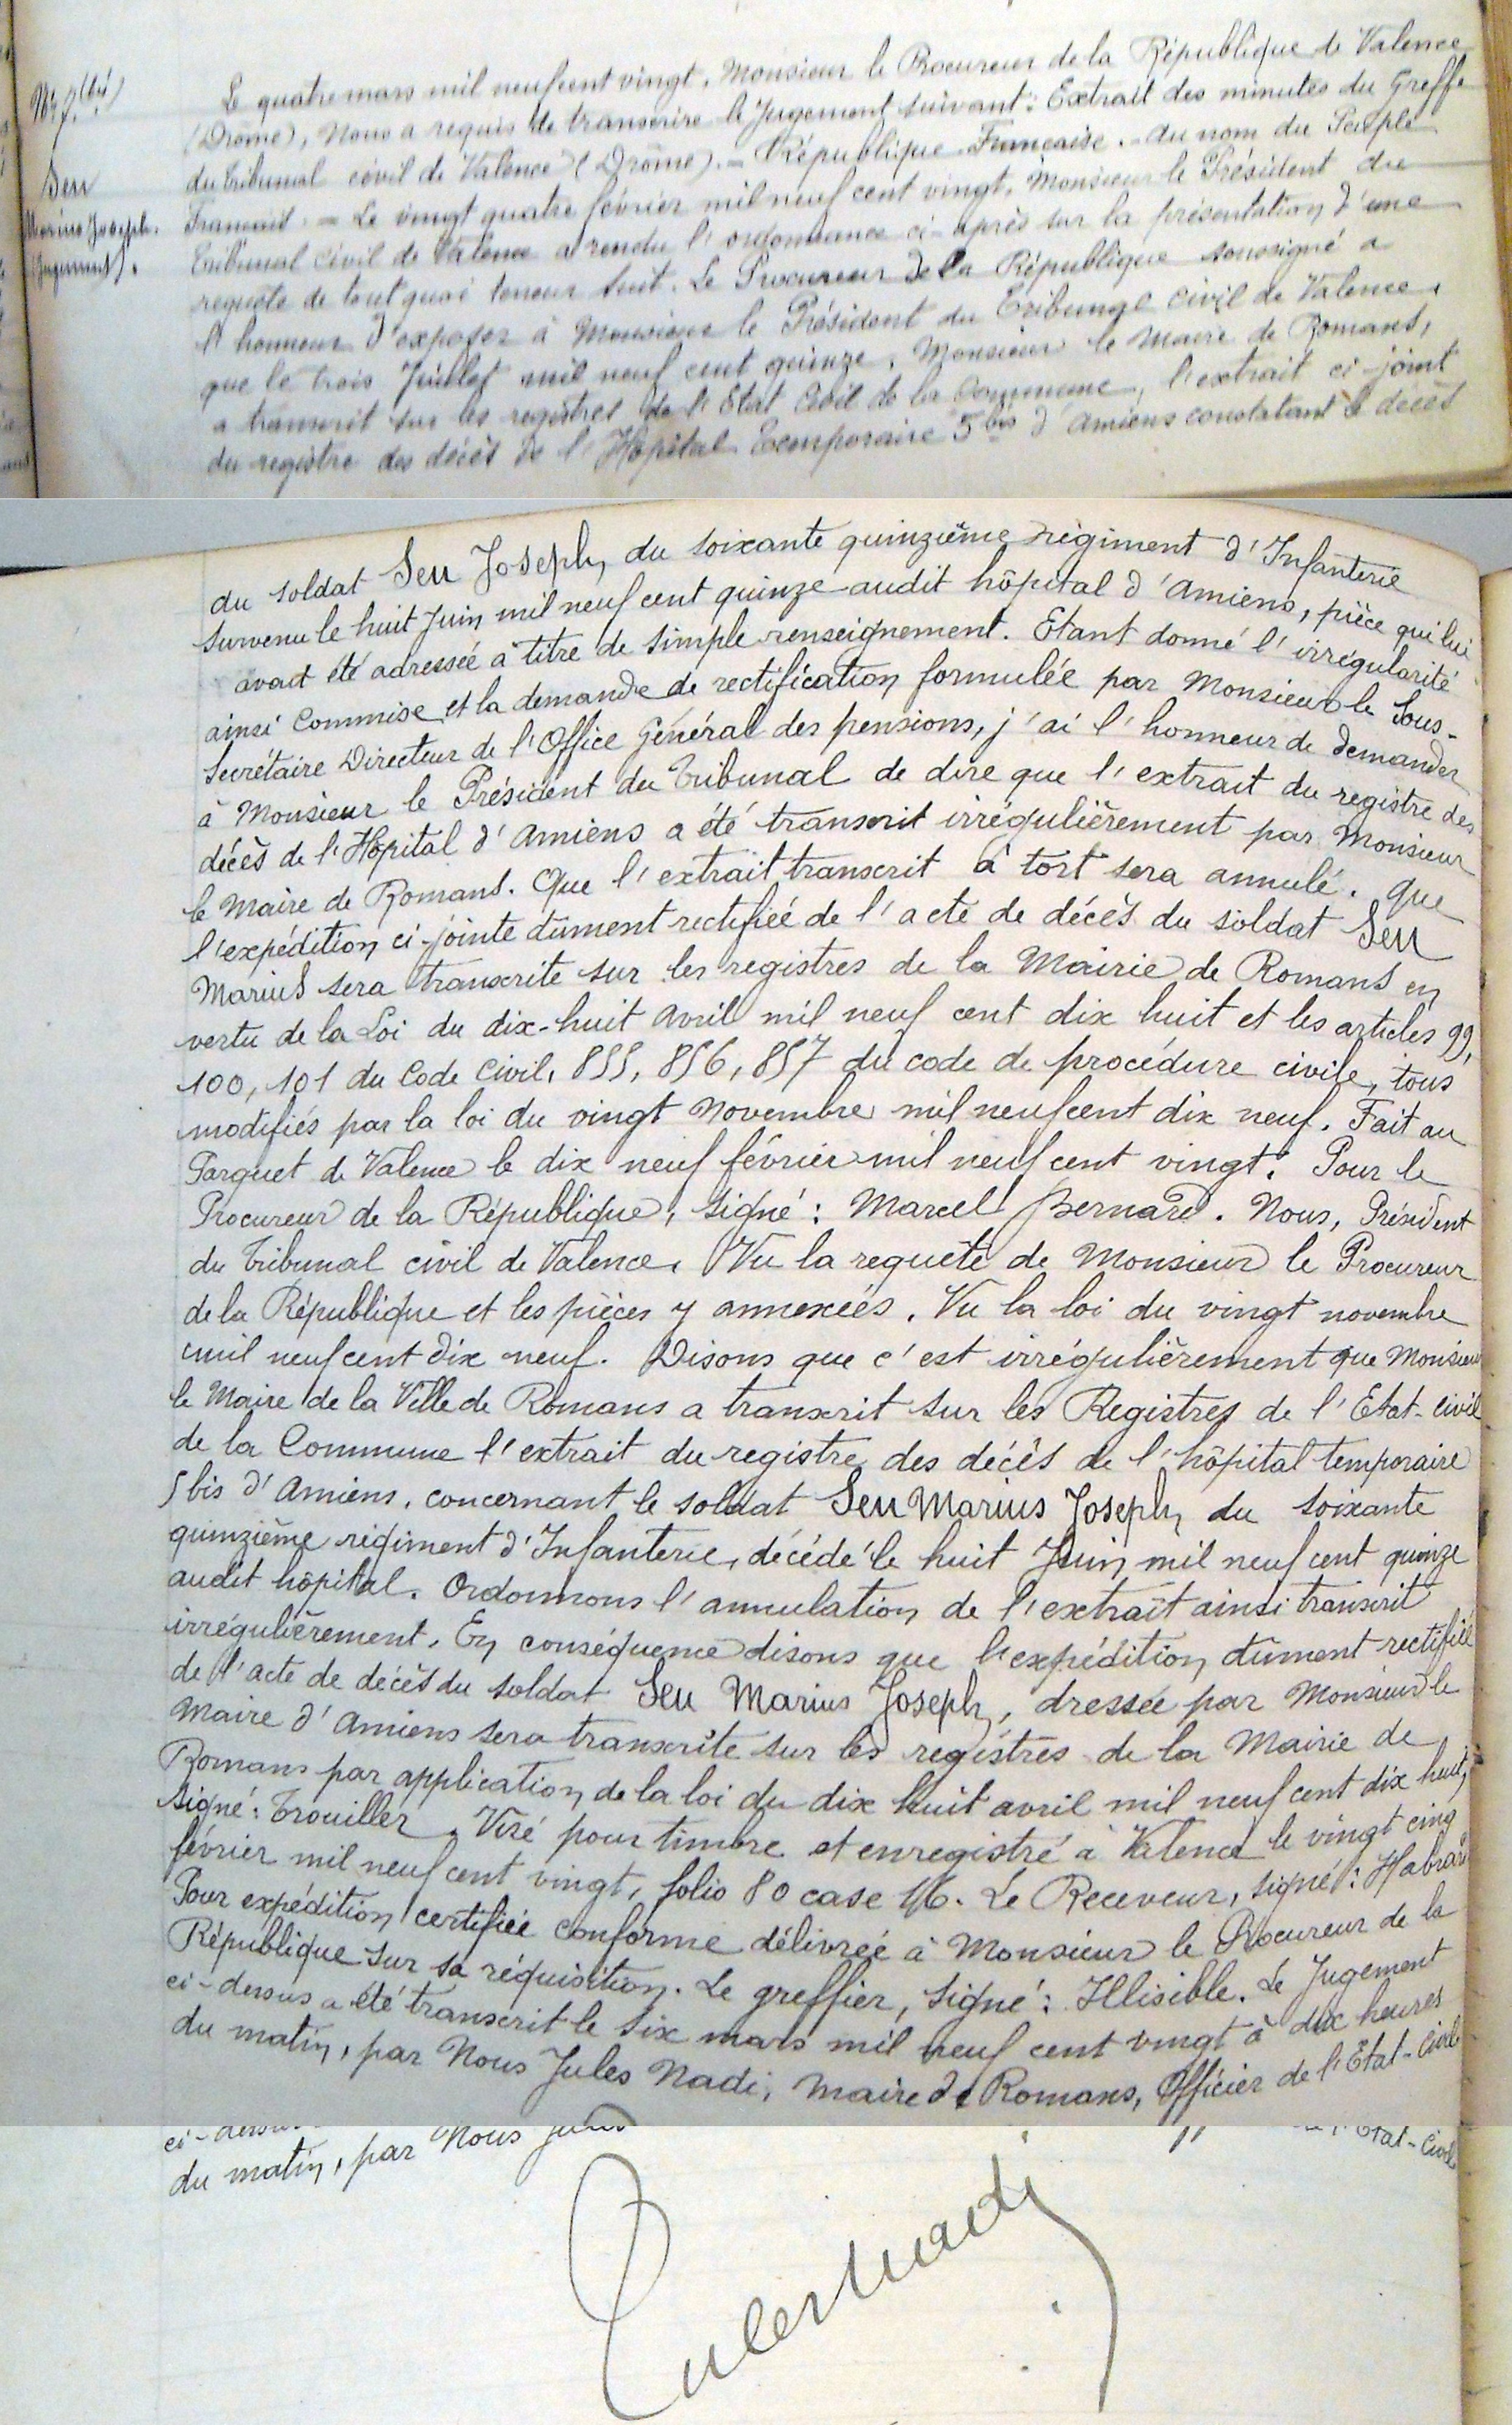 N° 7 (bis)
Seu
Marius Joseph.
(Jugement).
Le quatre mars mil neuf cent vingt, Monsieur le Procureur de la République de Valence
(Drôme), Nous a requis de transcrire le Jugement suivant : Extrait des minutes du Greffe
du tribunal civil de Valence (Drôme). – République Française. – Au nom du Peuple
Français. – Le vingt quatre février mil neuf cent vingt, Monsieur le Président du
Tribunal civil de Valence a rendu l'ordonnance ci-après sur la présentation d'une
requête de tout quoi teneur suit. Le Procureur de la République soussigné a
l'honneur d'exposer à Monsieur le Président du Tribunal civil de Valence,
que le trois Juillet mil neuf cent quinze, Monsieur le Maire de Romans,
a transcrit sur les registres de l'Etat Civil de la Commune, l'extrait ci-joint
du registre des décès de l'Hôpital Temporaire 5 bis d'Amiens constatant le décès
du soldat Seu Joseph, du soixante quinzième régiment d'Infanterie
survenu le huit Juin mil neuf cent quinze audit hôpital d'Amiens, pièce qui lui
avait été adressée à titre de simple renseignement. Etant donné l'irrégularité
ainsi commise et la demande de rectification formulée par Monsieur le Sous-
Secrétaire Directeur de l'Office Général des pensions, j'ai l'honneur de demander
à Monsieur le Président du Tribunal de dire que l'extrait du registre des
décès de l'Hôpital d'Amiens a été transcrit irrégulièrement par Monsieur
le Maire de Romans. Que l'extrait transcrit à tort sera annulé. Que
l'expédition ci-jointe dûment rectifiée de l'acte de décès du soldat Seu
Marius sera transcrite sur les registres de la Mairie de Romans en
vertu de la Loi du dix-huit Avril mil neuf cent dix huit et les articles 99,
100, 101 du Code Civil, 855, 856, 857 du code de procédure civile, tous
modifiés par la loi du vingt Novembre mil neuf cent dix neuf. Fait au
Parquet de Valence le dix neuf février mil neuf cent vingt. Pour le
Procureur de la République, signé : Marcel Bernard. Nous, Président
du Tribunal civil de Valence, Vu la requête de Monsieur le Procureur
de la République et les pièces y annexées. Vu la loi du vingt novembre
mil neuf cent dix neuf. Disons que c'est irrégulièrement que Monsieur
le Maire de la Ville de Romans a transcrit sur les Registres de l'Etat-Civil
de la Commune l'extrait du registre des décès de l'hôpital temporaire
5 bis d'Amiens, concernant le soldat Seu Marius Joseph, du soixante
quinzième régiment d'Infanterie, décédé le huit Juin mil neuf cent quinze
audit hôpital. Ordonnons l'annulation de l'extrait ainsi transcrit
irrégulièrement. En conséquence disons que l'expédition dûment rectifiée
de l'acte de décès du soldat Seu Marius Joseph, dressée par Monsieur le
Maire d'Amiens sera transcrite sur les registres de la Mairie de
Romans par application de la loi du dix huit avril mil neuf cent dix huit,
signé : Trouiller. Visé pour timbre et enregistré à Valence le vingt cinq
février mil neuf cent vingt, folio 80 case 16. Le Receveur, signé : Habrard
Pour expédition certifiée conforme délivrée à Monsieur le Procureur de la
République sur sa réquisition. Le greffier, signé : Illisible. Le Jugement
ci-dessus a été transcrit le six mars mil neuf cent vingt à dix heures
du matin, par Nous Jules Nadi, Maire de Romans, Officier de l'Etat-Civil
ci-dessus
du matin, par Nous Jules
l'Etat-Civil
Jules Nadi